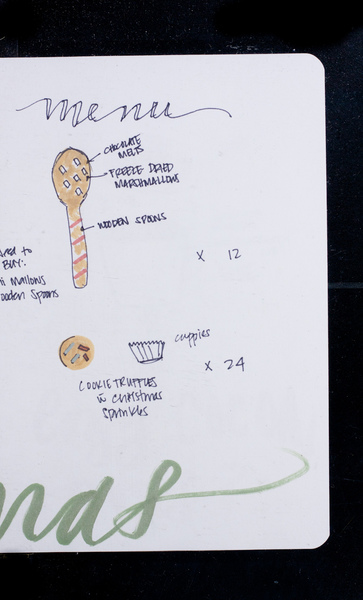 menu
CHOCOLATE
MELTS
FREEZE DRIED
MARSHMALLOWS
WOODEN SPOONS
to
BUY:
x 12
mallows
Spoons
cuppies
x 24
COOKIE TRUFFLES
w Christmas
sprinkles
mas